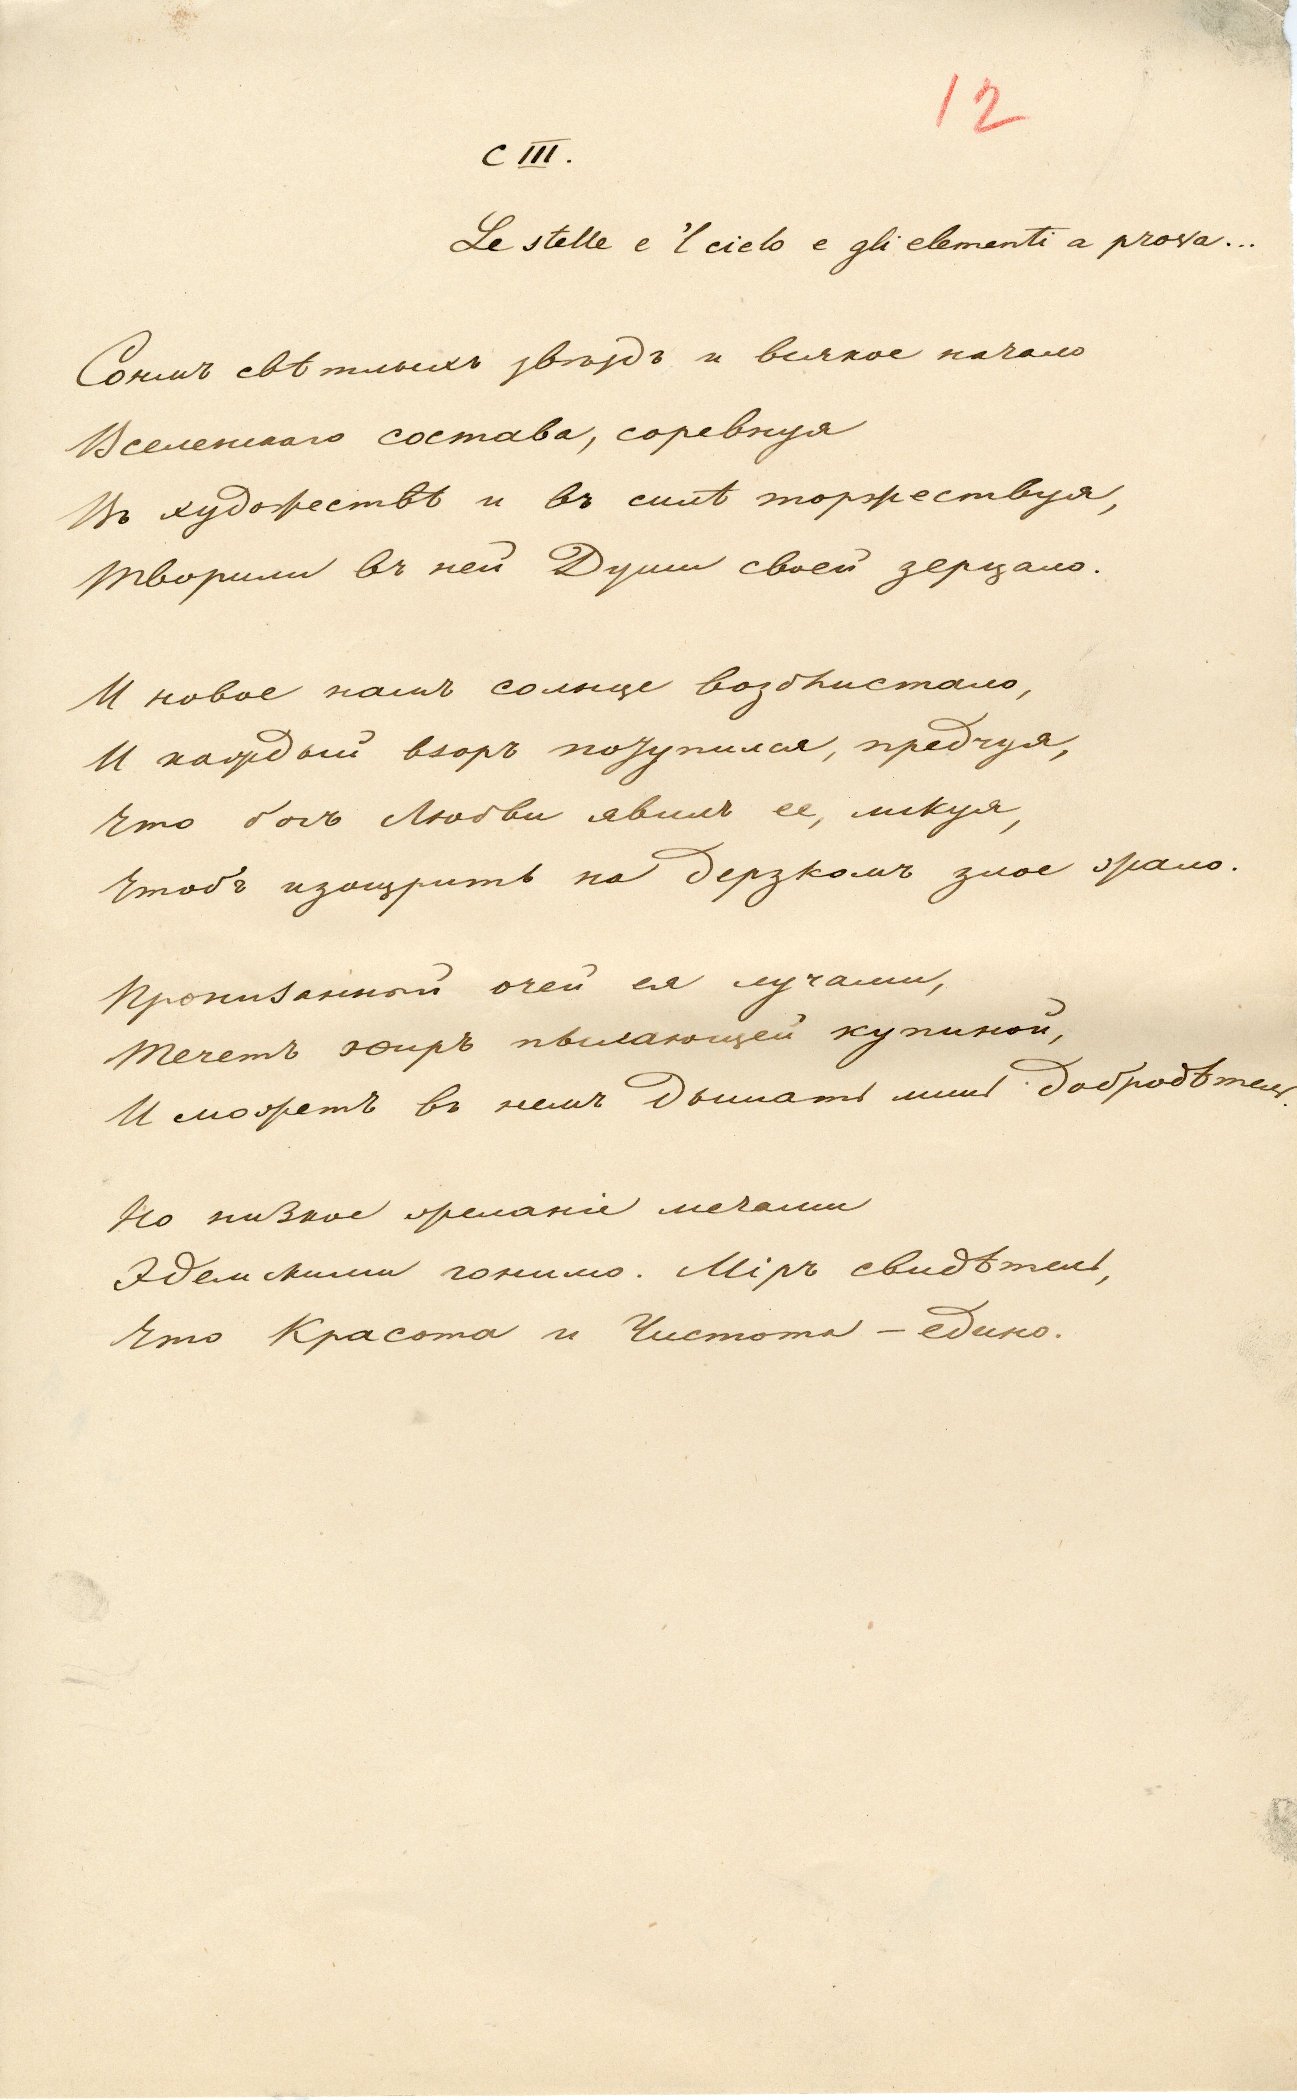 12
CIII.
Le stelle e 'l cielo e gli elementi a prova...
Сонмъ свѣтлыхъ звѣздъ и всякое начало
Вселенскаго состава, соревнуя
Въ художествѣ и въ силѣ торжествуя,
Творили въ ней Души своей зерцало.
И новое намъ солнце возблистало,
И каждый взоръ потупился, предчуя,
Что богъ Любви явилъ ее, ликуя,
Чтобъ изощрить на дерзкомъ злое жало.
Пронизанный очей ея лучами,
Течетъ эѳиръ пылающей купиной,
И можетъ въ немъ дышать лишь добродѣтель.
Но низкое желаніе мечами
Эдемскими гонимо. Міръ свидѣтель,
Что Красота и Чистота – едино.